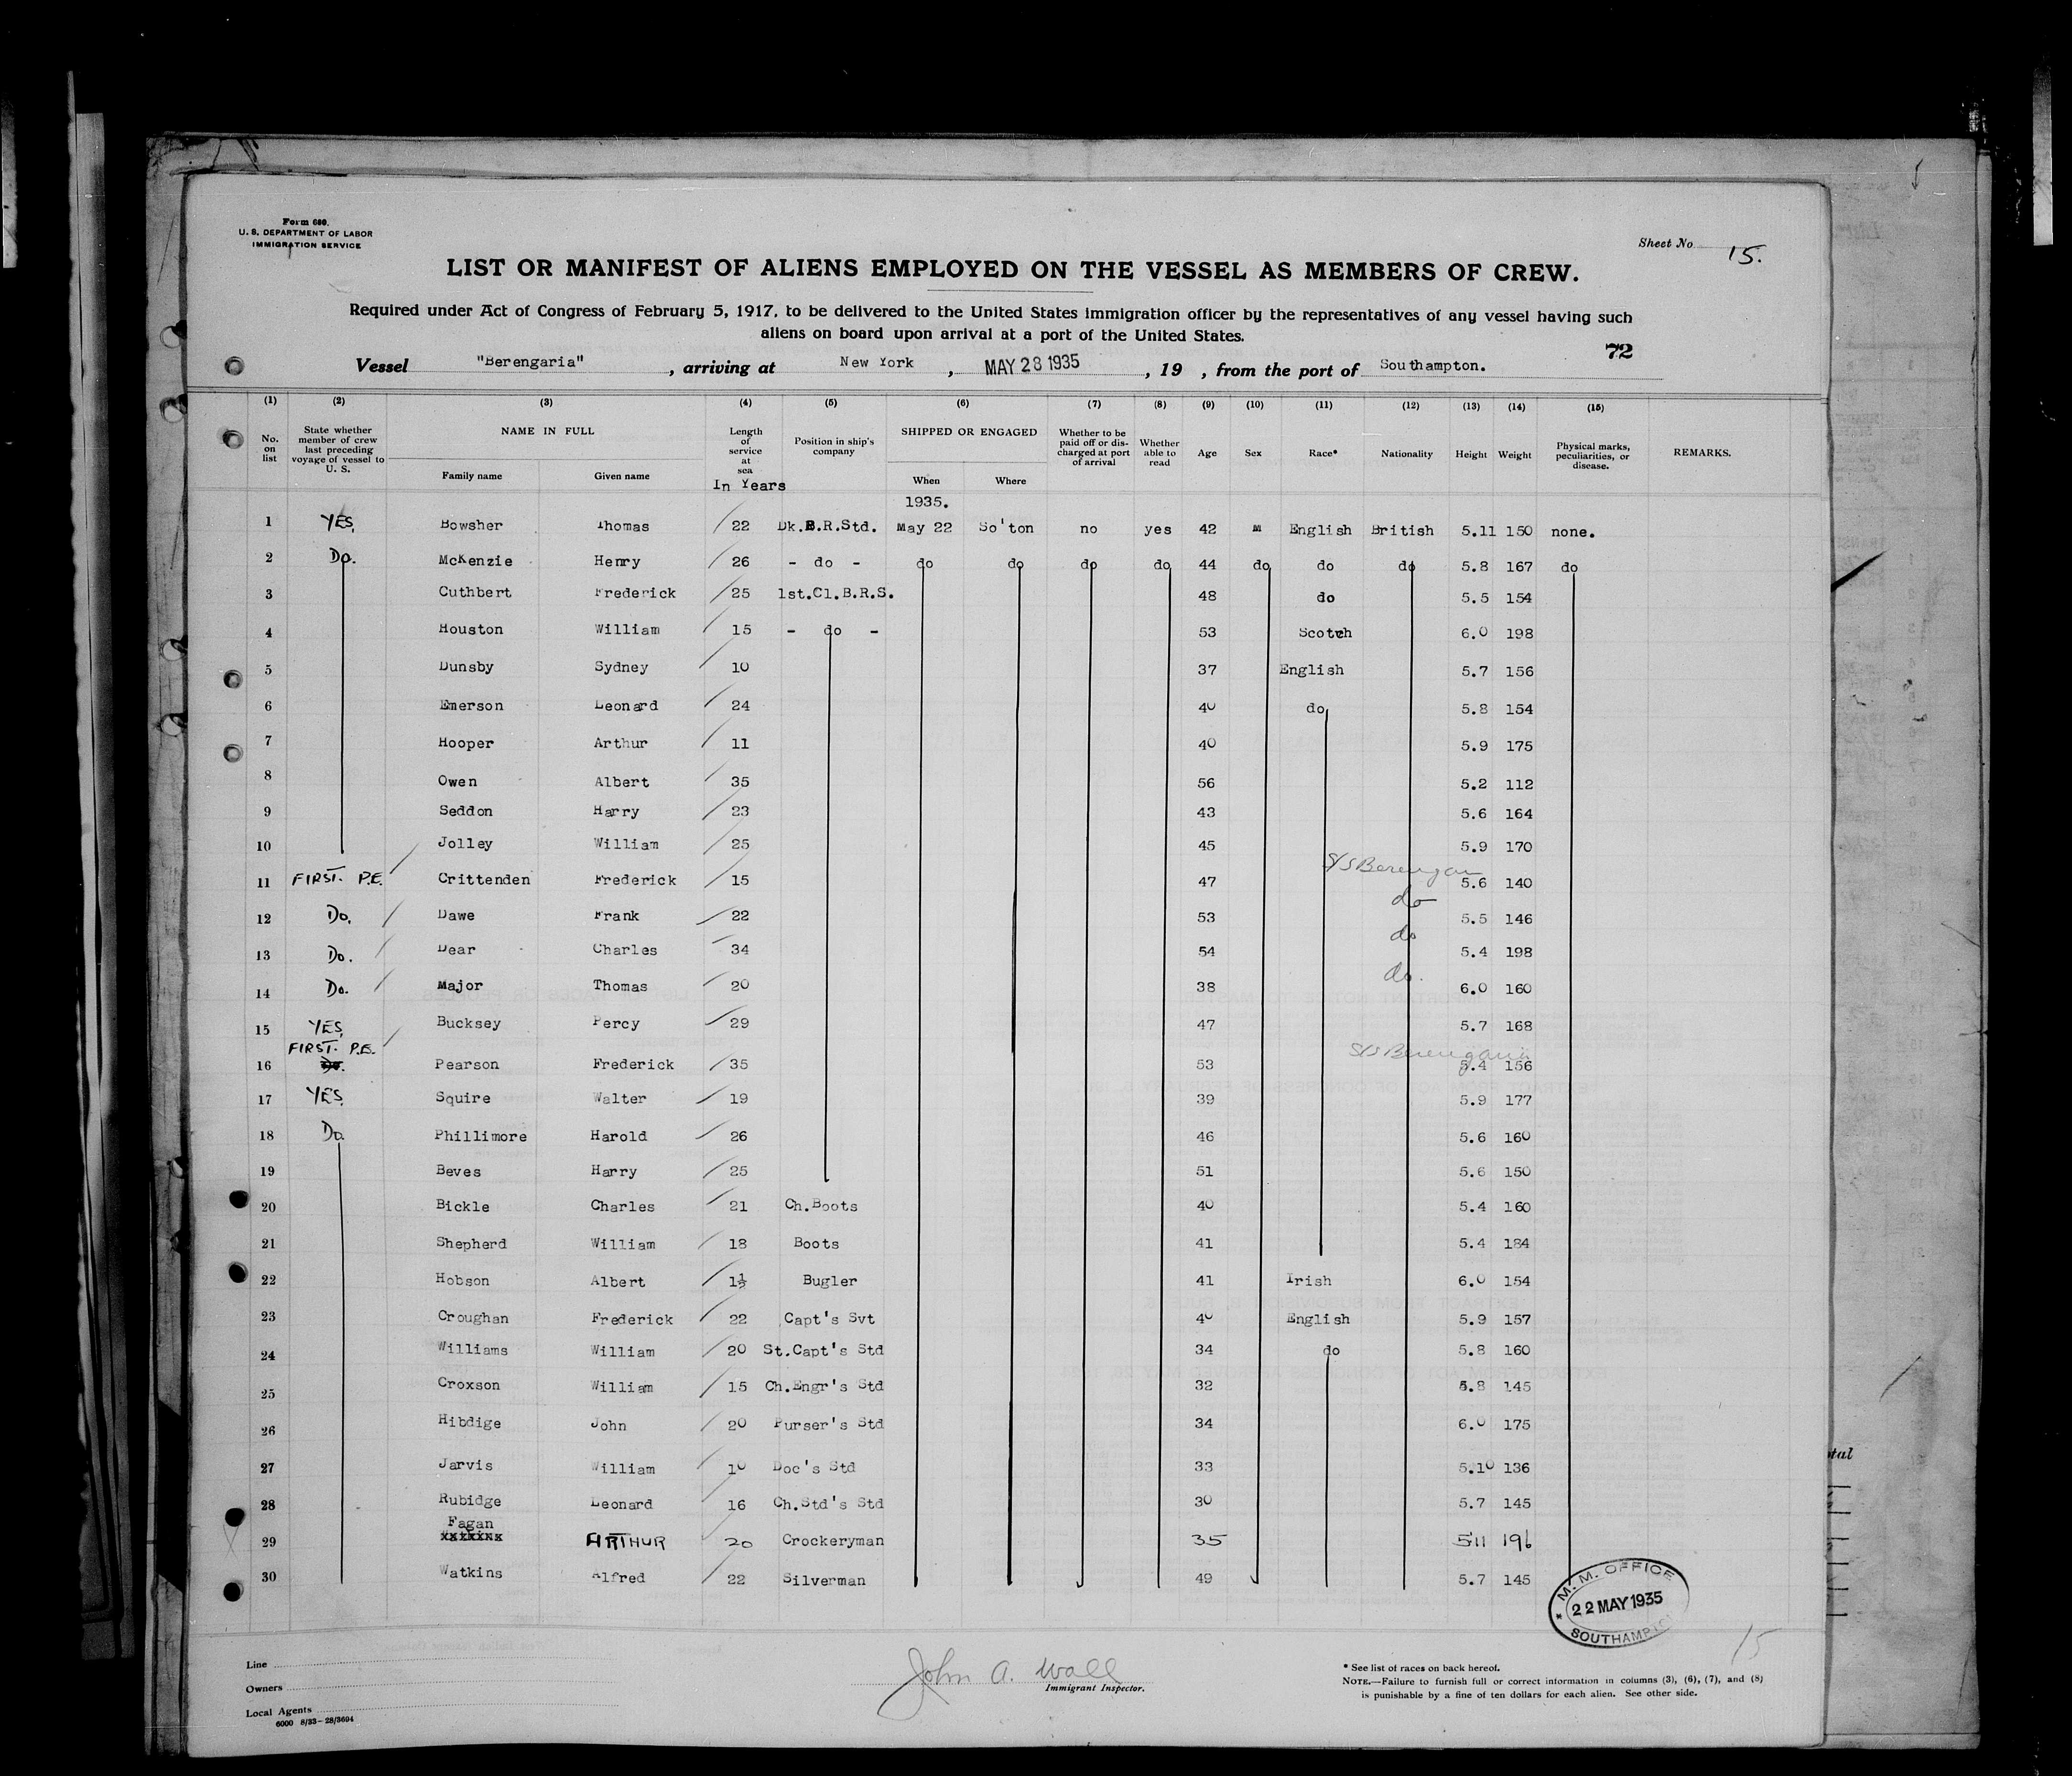 Form 680.
U. S. DEPARTMENT OF LABOR
IMMIGRATION SERVICE
Sheet No. 15.
LIST OR MANIFEST OF ALIENS EMPLOYED ON THE VESSEL AS MEMBERS OF CREW.
Required under Act of Congress of February 5, 1917, to be delivered to the United States immigration officer by the representatives of any vessel having such
aliens on board upon arrival at a port of the United States.
72
Vessel "Berengaria", arriving at New York, MAY 28 1935, 19 , from the port of Southampton.
(1) (2) (3) (4) (5) (6) (7) (8) (9) (10) (11) (12) (13) (14) (15)
No. on list State whether member of crew last preceding voyage of vessel to U. S. NAME IN FULL Family name Given name Length of service at sea In Years Position in ship's company SHIPPED OR ENGAGED When Where Whether to be paid off or discharged at port of arrival Whether able to read Age Sex Race* Nationality Height Weight Physical marks, peculiarities, or disease. REMARKS.
1935.
1 YES, Bowsher Thomas 22 Dk.B.R.Std. May 22 So'ton no yes 42 M English British 5.11 150 none.
2 Do. McKenzie Henry 26 - do - do do do do 44 do do do 5.8 167 do
3 Cuthbert Frederick 25 1st.Cl.B.R.S. 48 do 5.5 154
4 Houston William 15 - do - 53 Scotch 6.0 198
5 Dunsby Sydney 10 37 English 5.7 156
6 Emerson Leonard 24 40 do 5.8 154
7 Hooper Arthur 11 40 5.9 175
8 Owen Albert 35 56 5.2 112
9 Seddon Harry 23 43 5.6 164
10 Jolley William 25 45 5.9 170
11 FIRST. P.E. Crittenden Frederick 15 47 S/S Berengar 5.6 140
12 Do. Dawe Frank 22 53 do 5.5 146
13 Do. Dear Charles 34 54 do 5.4 198
14 Do. Major Thomas 20 38 do. 6.0 160
15 YES, Bucksey Percy 29 47 5.7 168
16 FIRST. P.E. Do. Pearson Frederick 35 53 S/S Berengaria 5.4 156
17 YES. Squire Walter 19 39 5.9 177
18 Do. Phillimore Harold 26 46 5.6 160
19 Beves Harry 25 51 5.6 150
20 Bickle Charles 21 Ch.Boots 40 5.4 160
21 Shepherd William 18 Boots 41 5.4 184
22 Hobson Albert 1½ Bugler 41 Irish 6.0 154
23 Croughan Frederick 22 Capt's Svt 40 English 5.9 157
24 Williams William 20 St.Capt's Std 34 do 5.8 160
25 Croxson William 15 Ch.Engr's Std 32 5.8 145
26 Hibdige John 20 Purser's Std 34 6.0 175
27 Jarvis William 10 Doc's Std 33 5.10 136
28 Rubidge Leonard 16 Ch.Std's Std 30 5.7 145
29 Fagan ARTHUR 20 Crockeryman 35 5 11 196
30 Watkins Alfred 22 Silverman 49 5.7 145
M. M. OFFICE
22 MAY 1935
SOUTHAMPTON
15
Line
Owners
Local Agents
6000 8/33-28/3694
John A. Wall
Immigrant Inspector.
* See list of races on back hereof.
NOTE.—Failure to furnish full or correct information in columns (3), (6), (7), and (8)
is punishable by a fine of ten dollars for each alien. See other side.